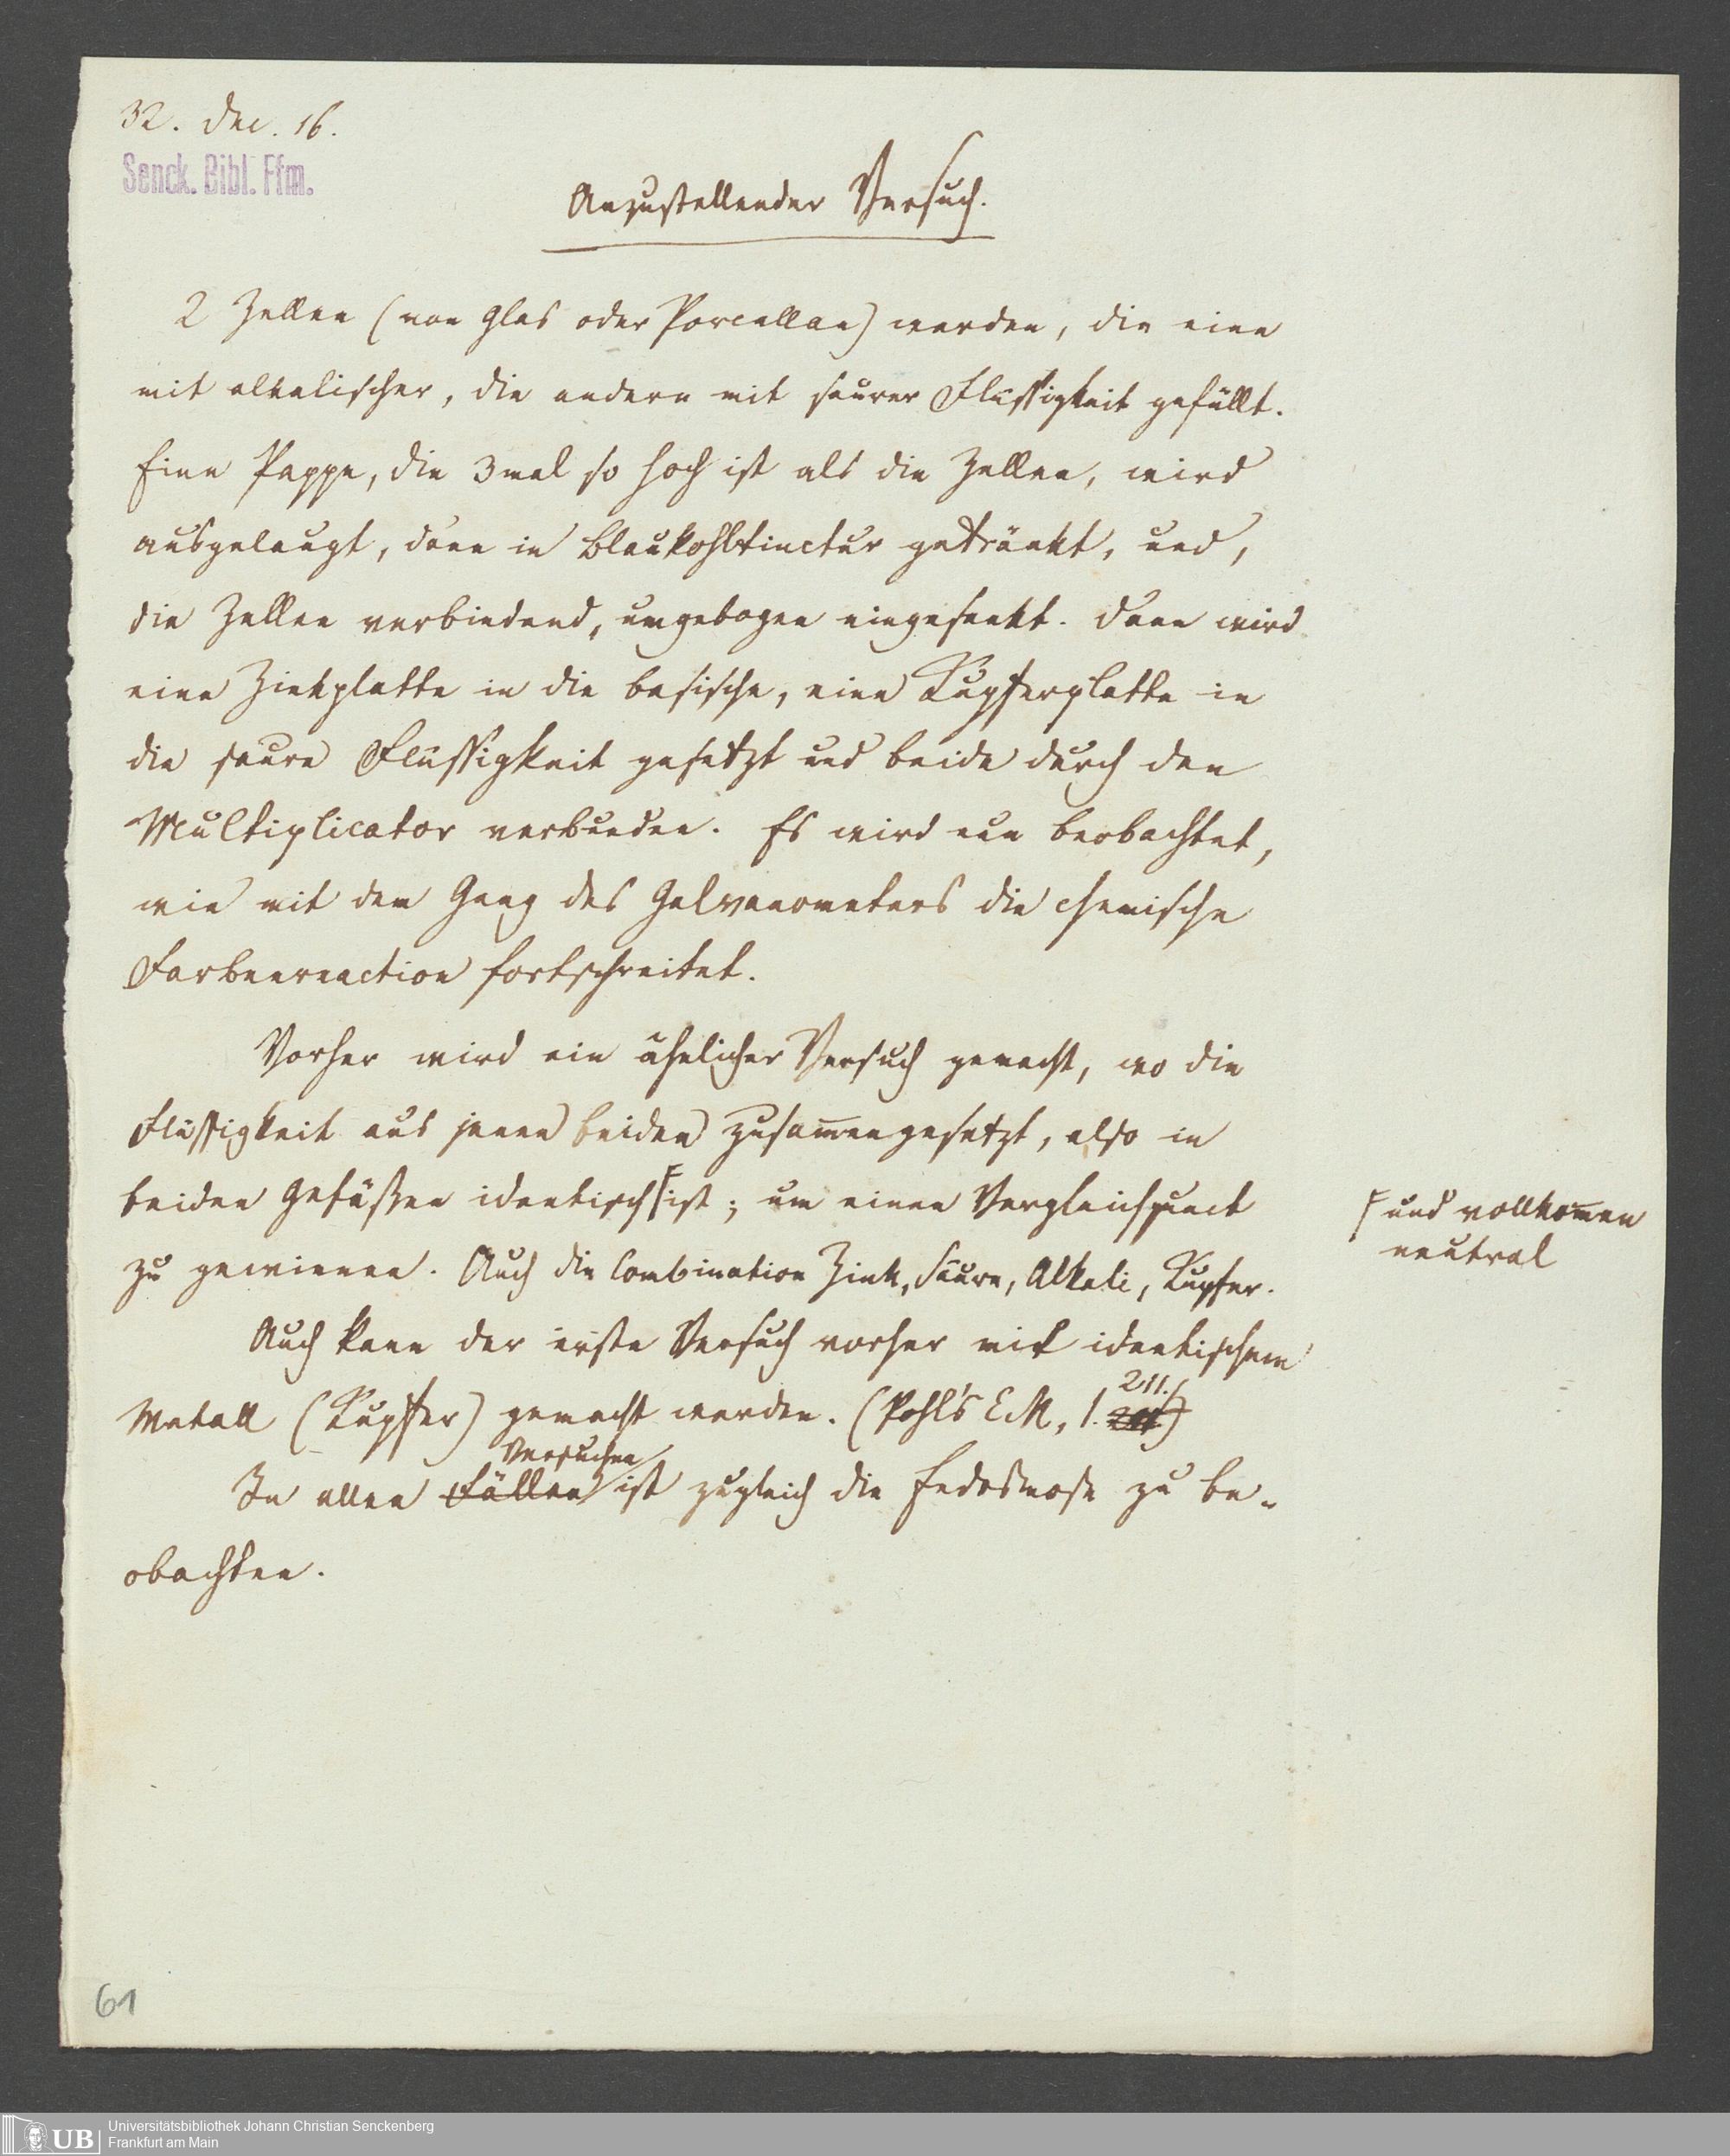 32. Dec. 16.
Senck. Bibl. Ffm.
Anzustellender Versuch.
2 Zellen (von Glas oder Porcellan) werden, die eine
mit alkalischer, die andere mit saurer Flüssigkeit gefüllt.
Eine Pappe, die 3mal so hoch ist als die Zellen, wird
ausgelaugt, dann in Blaukohltinctur getränkt, und,
die Zellen verbindend, umgebogen eingesenkt. Dann wird
eine Zinkplatte in die basische, eine Kupferplatte in
die saure Flüssigkeit gesetzt und beide durch den
Multiplicator verbunden. Es wird nun beobachtet,
wie mit dem Gang des Galvanometers die chemische
Farbenreaction fortschreitet.
Vorher wird ein ähnlicher Versuch gemacht, wo die
Flüssigkeit aus jenen beiden zusam̅engesetzt, also in
beiden Gefäßen identisch ist; um einen Vergleichpunct
und vollkom̅en
neutral
zu gewinnen. Auch die Combination Zink, Säure, Alkali, Kupfer.
Auch kann der erste Versuch vorher mit identischem
Metall (Kupfer) gemacht werden. (Pohl's E.M, 1. 211.)
Versuchen
In allen Fällen ist zugleich die Endosmose zu be-
obachten.
61
UB
Universitätsbibliothek Johann Christian Senckenberg
Frankfurt am Main